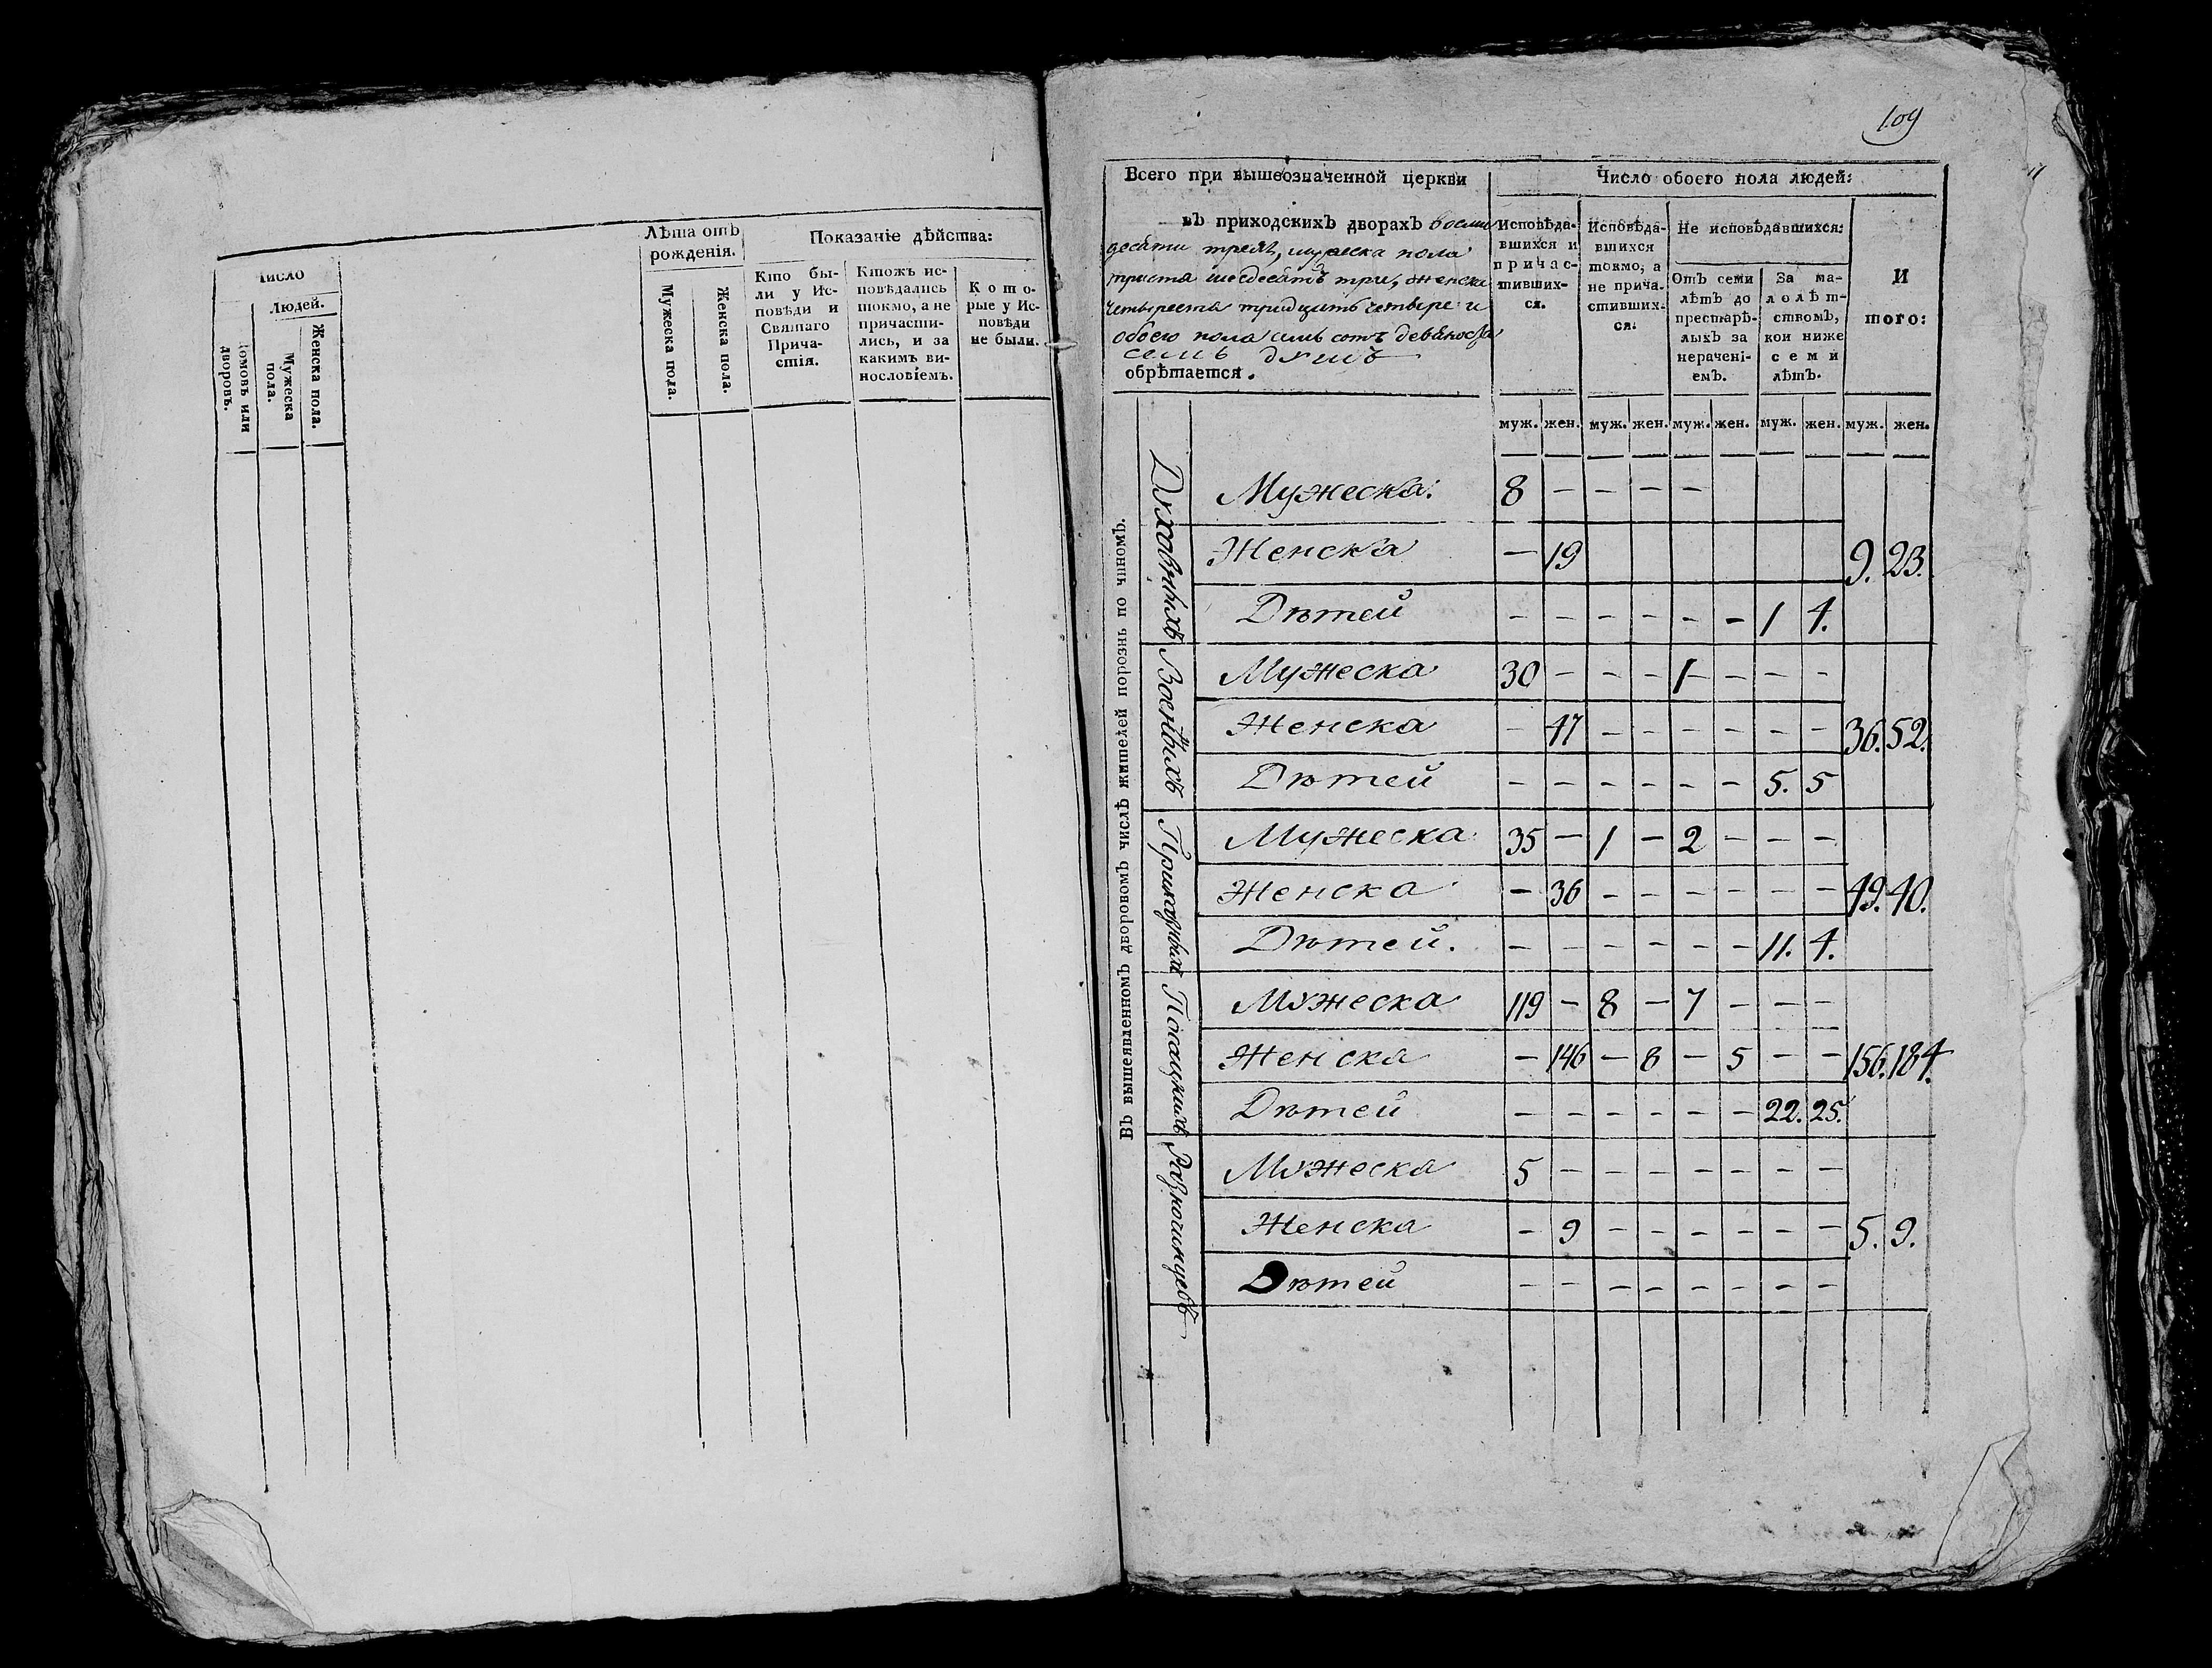 число
Людей.
домовъ или дворовъ.
Мужеска пола.
Женска пола.
Лѣта отъ рожденія.
Мужеска пола.
Женска пола.
Показаніе дѣйства:
Кто бы-
ли у Ис-
повѣди и
Святаго
Прича-
стія.
Ктожъ ис-
повѣдались
токмо, а не
причасти-
лись, и за
какимъ ви-
нословіемъ.
Кото-
рые у Ис-
повѣди
не были.
109
Всего при вышеозначенной церкви
въ приходскихъ дворахъ восми
десяти трехъ, мужеска пола
триста шесдесятъ три, женска
четыреста тридцать четыре и
обоего пола семь сотъ девяносто
семь душъ
обрѣтается.
Число обоего пола людей:
Исповѣда-
вшихся и
причас-
тивших-
ся.
Исповѣда-
вшихся
токмо, а
не прича-
стивших-
ся:
Не исповѣдавшихся:
Отъ семи
лѣтъ до
престарѣ-
лыхъ за
нерачені-
емъ.
За ма-
лолѣт-
ствомъ,
кои ниже
семи
лѣтъ.
И
того:
муж. жен. муж. жен. муж. жен. муж. жен. муж. жен.
Въ вышеявленномъ дворовомъ числѣ жителей порознь по чиномъ.
Духовныхъ
Мужеска: 8 – – – –
Женска – 19 9. 23.
Дѣтей – – – – – – 1 4.
Военныхъ
Мужеска 30 – – – 1 – – –
Женска – 47 – – – – – – 36. 52.
Дѣтей – – – – – – 5. 5
Приказныхъ
Мужеска 35 – 1 – 2 – – –
Женска – 36 – – – – – – 49. 40.
Дѣтей. – – – – – – 11. 4.
Посацкихъ
Мужеска 119 – 8 – 7 – – –
Женска – 146 – 8 – 5 – – 156. 184.
Дѣтей – – – – – – 22. 25.
Разночинцевъ
Мужеска 5 – – – – – – –
Женска – 9 – – – – – – 5. 9.
Дѣтей – – – – – – – –